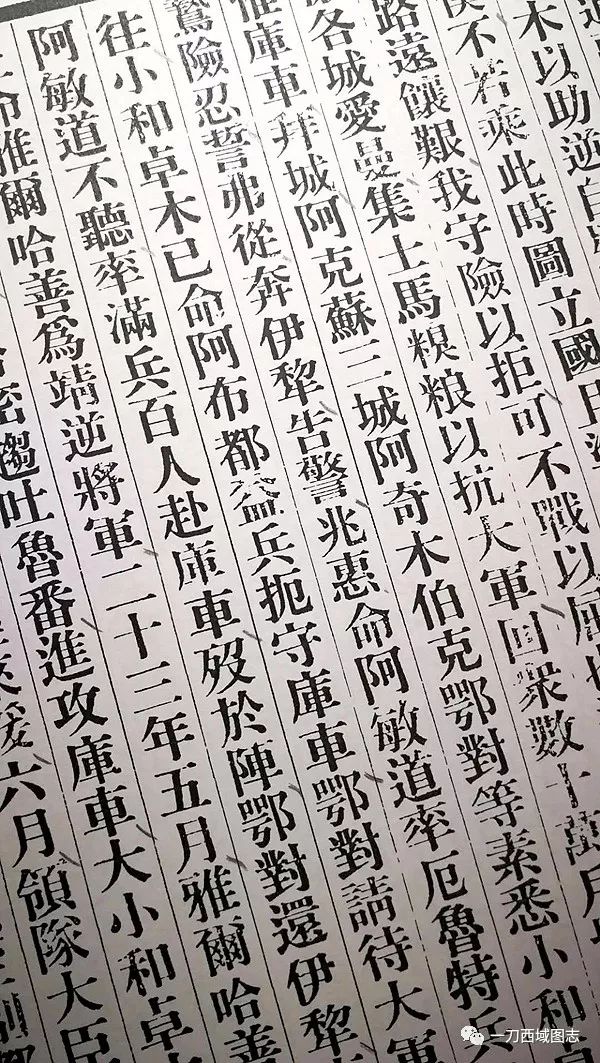 木以助逆自
不若乘此時圖立國
路遠饟艱我守險以拒可不戰以屈
各城愛曼集士馬糗粮以抗大軍回衆數十萬
庫車拜城阿克蘇三城阿奇木伯克鄂對等素悉小和
鷙險忍誓弗從奔伊犂告警兆惠命阿敏道率厄魯特兵
往小和卓木已命阿布都益兵扼守庫車鄂對請待大軍
阿敏道不聽率滿兵百人赴庫車歿於陣鄂對還伊犂
命雅爾哈善爲靖逆將軍二十三年五月雅爾哈善
密趨吐魯番進攻庫車大小和卓
援六月領隊大臣
一刀西域图志